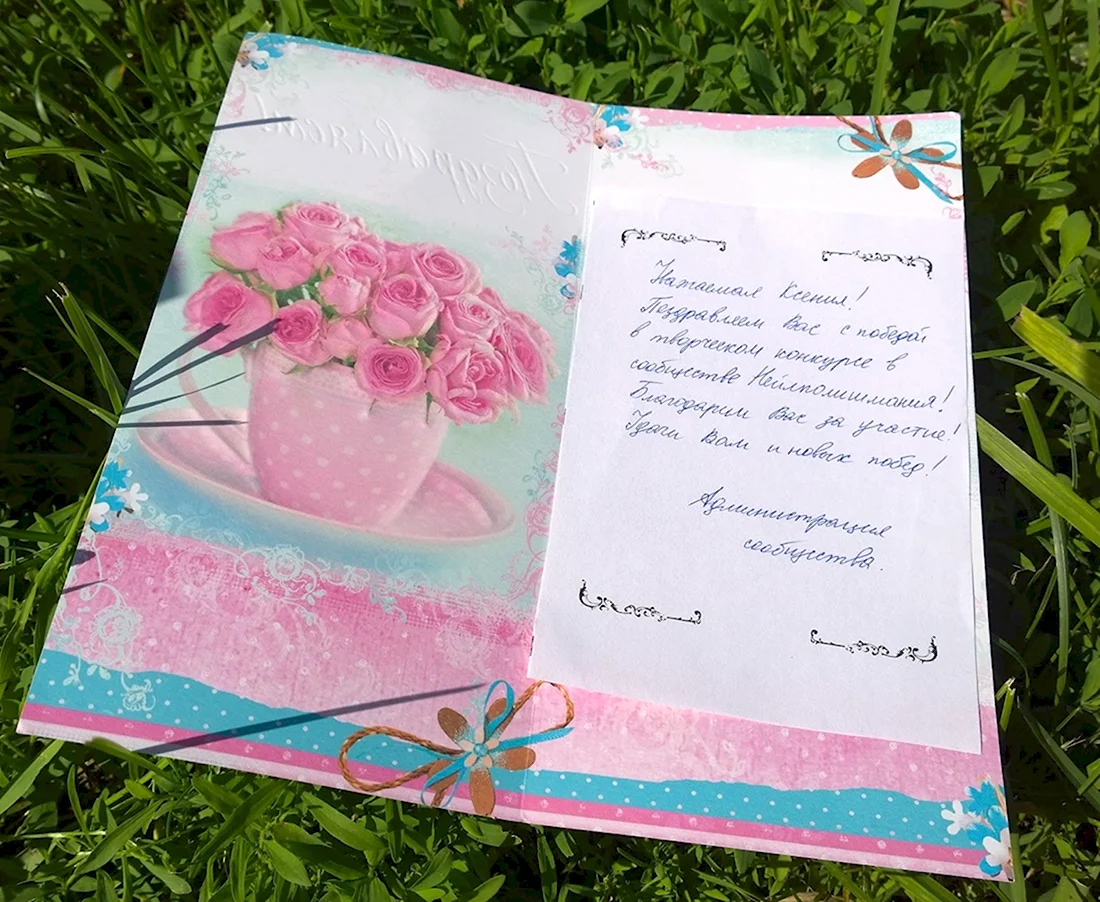 Поздравляем!
Уважаемая Ксения!
Поздравляем Вас с победой
в творческом конкурсе в
сообществе Нейлполишмания!
Благодарим Вас за участие!
Удачи Вам и новых побед!
Администрация
сообщества.